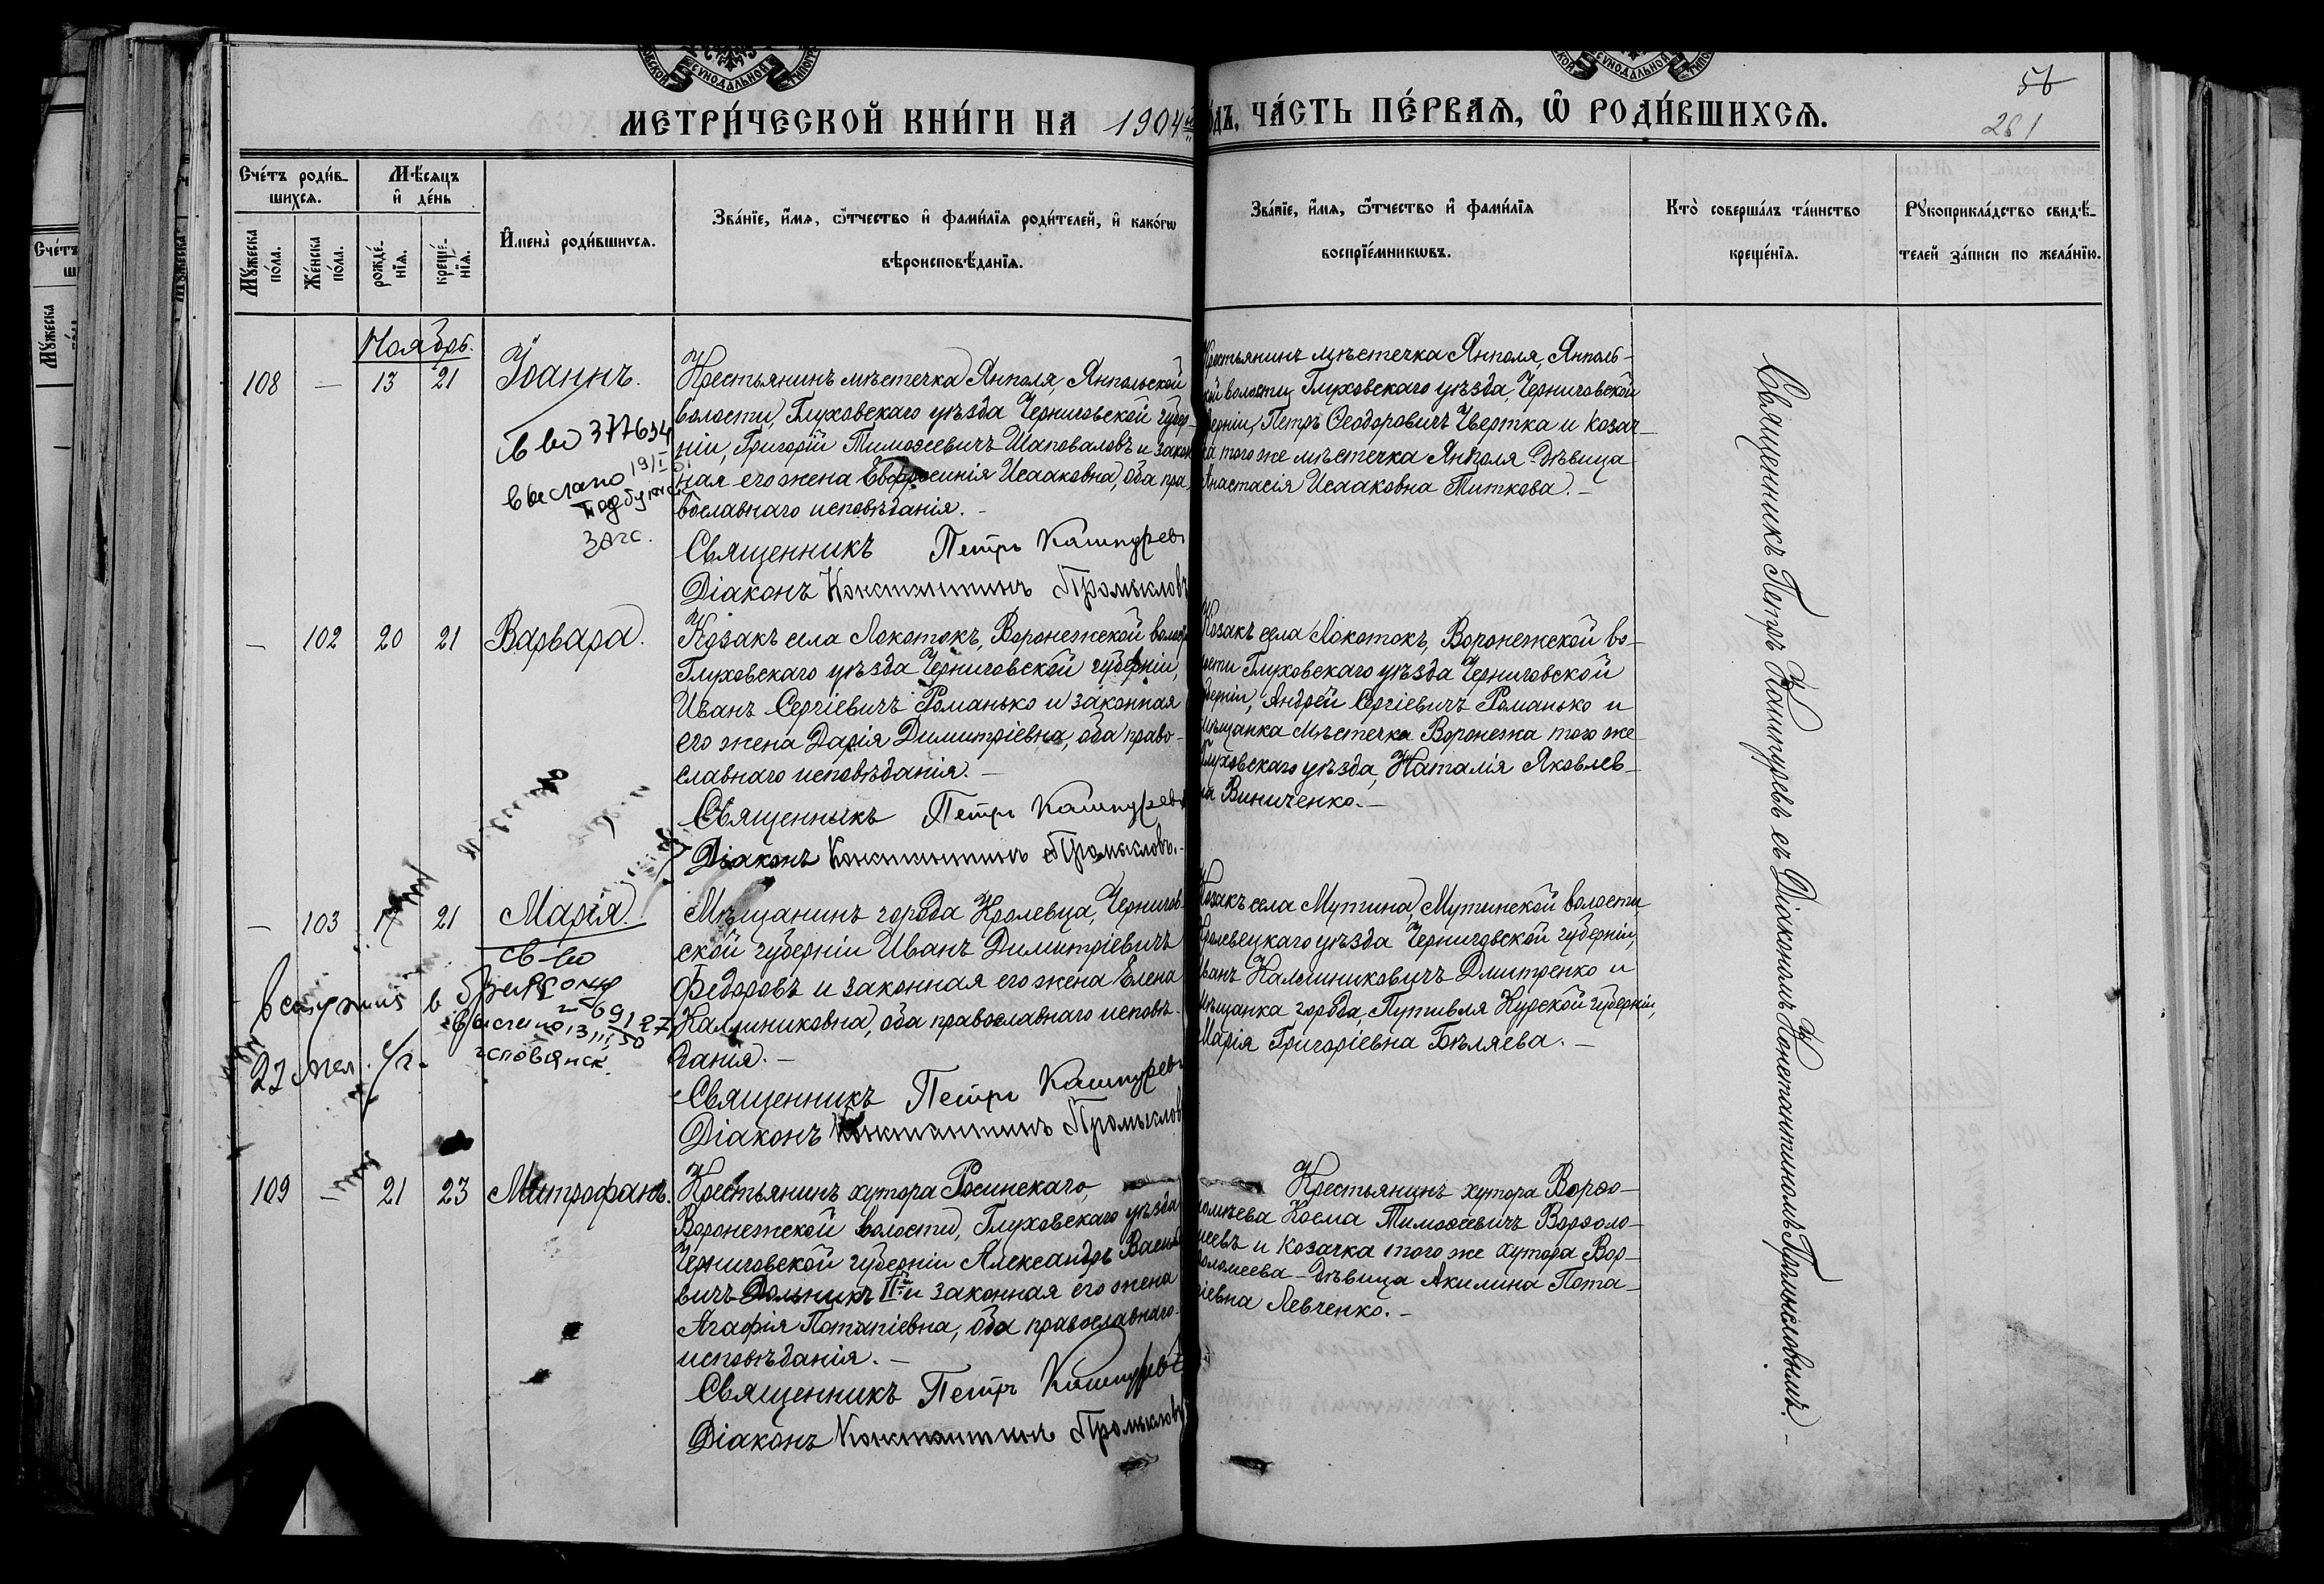 МЕТРИ́ЧЕСКОЙ КНИ́ГИ НА 1904й
ГО́ДЪ, ЧА́СТЬ ПЕ́РВАѦ, Ѽ РОДИ́ВШИХСѦ.
56
281
Сче́тъ роди́в-
шихсѧ.
Мѣ́сѧцъ
и҆ де́нь
Мꙋ́жеска
по́ла.
Же́нска
по́ла.
рожде́-
нїѧ.
креще́-
нїѧ.
И҆мена̀ роди́вшихсѧ.
Зва́нїе, и҆́мѧ, ѻ҆́тчество и҆ фами́лїѧ роди́телей, и҆ како́гѡ
вѣроисповѣ́данїѧ.
Зва́нїе, и҆́мѧ, ѻ҆́тчество и҆ фами́лїѧ
воспрїе́мникѡвъ.
Кто̀ соверша́лъ та́инство
креще́нїѧ.
Рꙋкоприкла́дство свидѣ́-
телей за́писи по жела́нїю.
Ноябрь.
108 — 13 21 Іоаннъ.
св во 377634
выслано 19/I
ЗАГС.
Крестьянинъ мѣстечка Янполя, Янпольской
волости, Глуховскаго уѣзда Черниговской губер-
ніи, Григорій Тимоѳеевичъ Шаповаловъ и закон-
ная его жена Евфросинія Исааковна, оба пра-
вославнаго исповѣданія. —
Священникъ Петръ Кашпуревъ
Діаконъ Константинъ Промысловъ
Крестьянинъ мѣстечка Янполя, Янполь-
ской волости Глуховскаго уѣзда, Черниговской
губерніи, Петръ Ѳеодоровичъ Чвертка и козач-
ка того же мѣстечка Янполя — дѣвица
Анастасія Исааковна Титкова. —
— 102 20 21 Варвара.
Козакъ села Локотокъ, Воронежской волости
Глуховскаго уѣзда Черниговской губерніи,
Иванъ Сергіевичъ Романько и законная
его жена Дарія Димитріевна, оба право-
славнаго исповѣданія. —
Священникъ Петръ Кашпуревъ
Діаконъ Константинъ Промысловъ. —
Козакъ села Локотокъ, Воронежской во-
лости Глуховскаго уѣзда Черниговской
губерніи, Андрей Сергіевичъ Романько и
мѣщанка мѣстечка Воронежа того же
Глуховскаго уѣзда, Наталія Яковлев-
на Виниченко. —
— 103 17 21 Марія.
св-во
выслано 13/III 50
Мѣщанинъ города Кролевца, Чернигов-
ской губерніи Иванъ Димитріевичъ
Федоровъ и законная его жена Елена
Каллиниковна, оба православнаго исповѣ-
данія. —
Священникъ Петръ Кашпуревъ
Діаконъ Константинъ Промысловъ
Козакъ села Мутина, Мутинской волости
Кролевецкаго уѣзда Черниговской губерніи,
Иванъ Калинниковичъ Дмитренко и
мѣщанка города Путивля Курской губерніи,
Марія Григоріевна Бѣляева. —
109 — 21 23 Митрофанъ.
Крестьянинъ хутора Росинскаго,
Воронежской волости, Глуховскаго уѣзда
Черниговской губерніи Александръ Василье-
вичъ Дольникъ IIй и законная его жена
Агафія Потапіевна, оба православнаго
исповѣданія. —
Священникъ Петръ Кашпуревъ
Діаконъ Константинъ Промысловъ
Крестьянинъ хутора Ворѳо-
ломѣева Косма Тимоѳеевичъ Ворѳоло-
меевъ и козачка того же хутора Вор-
ѳоломеева — дѣвица Акилина Пота-
піевна Левченко. —
Священникъ Петръ Кашпуревъ съ Діакономъ Константиномъ Промысловымъ. —